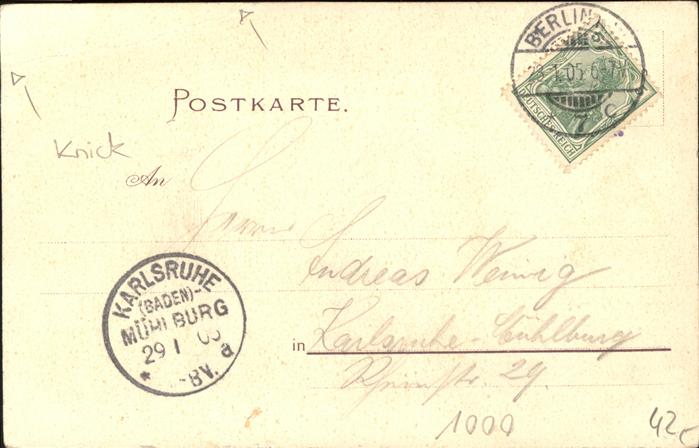 BERLIN
.1.05 6-7N
DEUTSCHES REICH
7 c
POSTKARTE.
Knick
An
Herrn
Andreas
KARLSRUHE
(BADEN)-
MÜHLBURG
29 1 05
* -8V. a
in Karlsruhe-Mühlburg
Rheinstr. 29.
1000